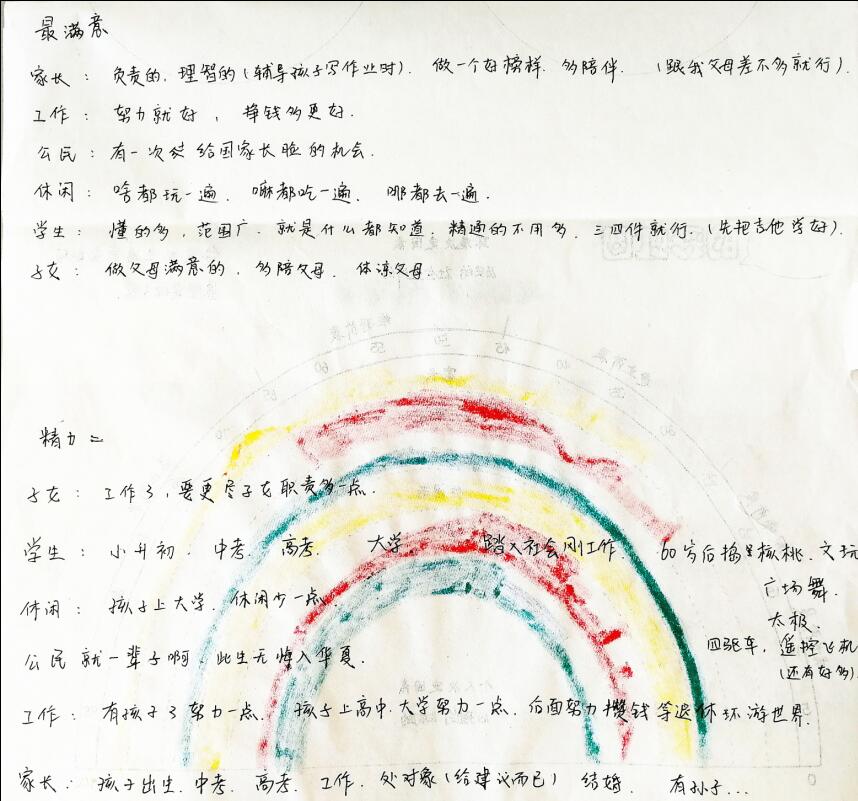 最满意
家长：负责的，理智的（辅导孩子写作业时）．做一个好榜样．多陪伴．（跟我父母差不多就行）．
工作：努力就好，挣钱多更好．
公民：有一次能给国家长脸的机会．
休闲：啥都玩一遍．嘛都吃一遍．哪都去一遍．
学生：懂的多，范围广．就是什么都知道．精通的不用多．三四件就行．（先把吉他学好）．
子女：做父母满意的，多陪父母．体谅父母
50
55
45
60
40
65
35
70
30
精力=
子女：工作了，要更尽子女职责多一点．
学生：小升初．中考．高考．大学．踏入社会刚工作．60岁后搞整核桃．文玩
广场舞．
休闲：孩子上大学．休闲少一点．
太极．
四驱车，遥控飞机
（还有好多）．
公民 就一辈子啊．此生无悔入华夏．
工作：有孩子了努力一点．孩子上高中．大学努力一点．后面努力攒钱等退休环游世界．
家长：孩子出生．中考．高考．工作．处对象（给建议而已）结婚．有孙子...